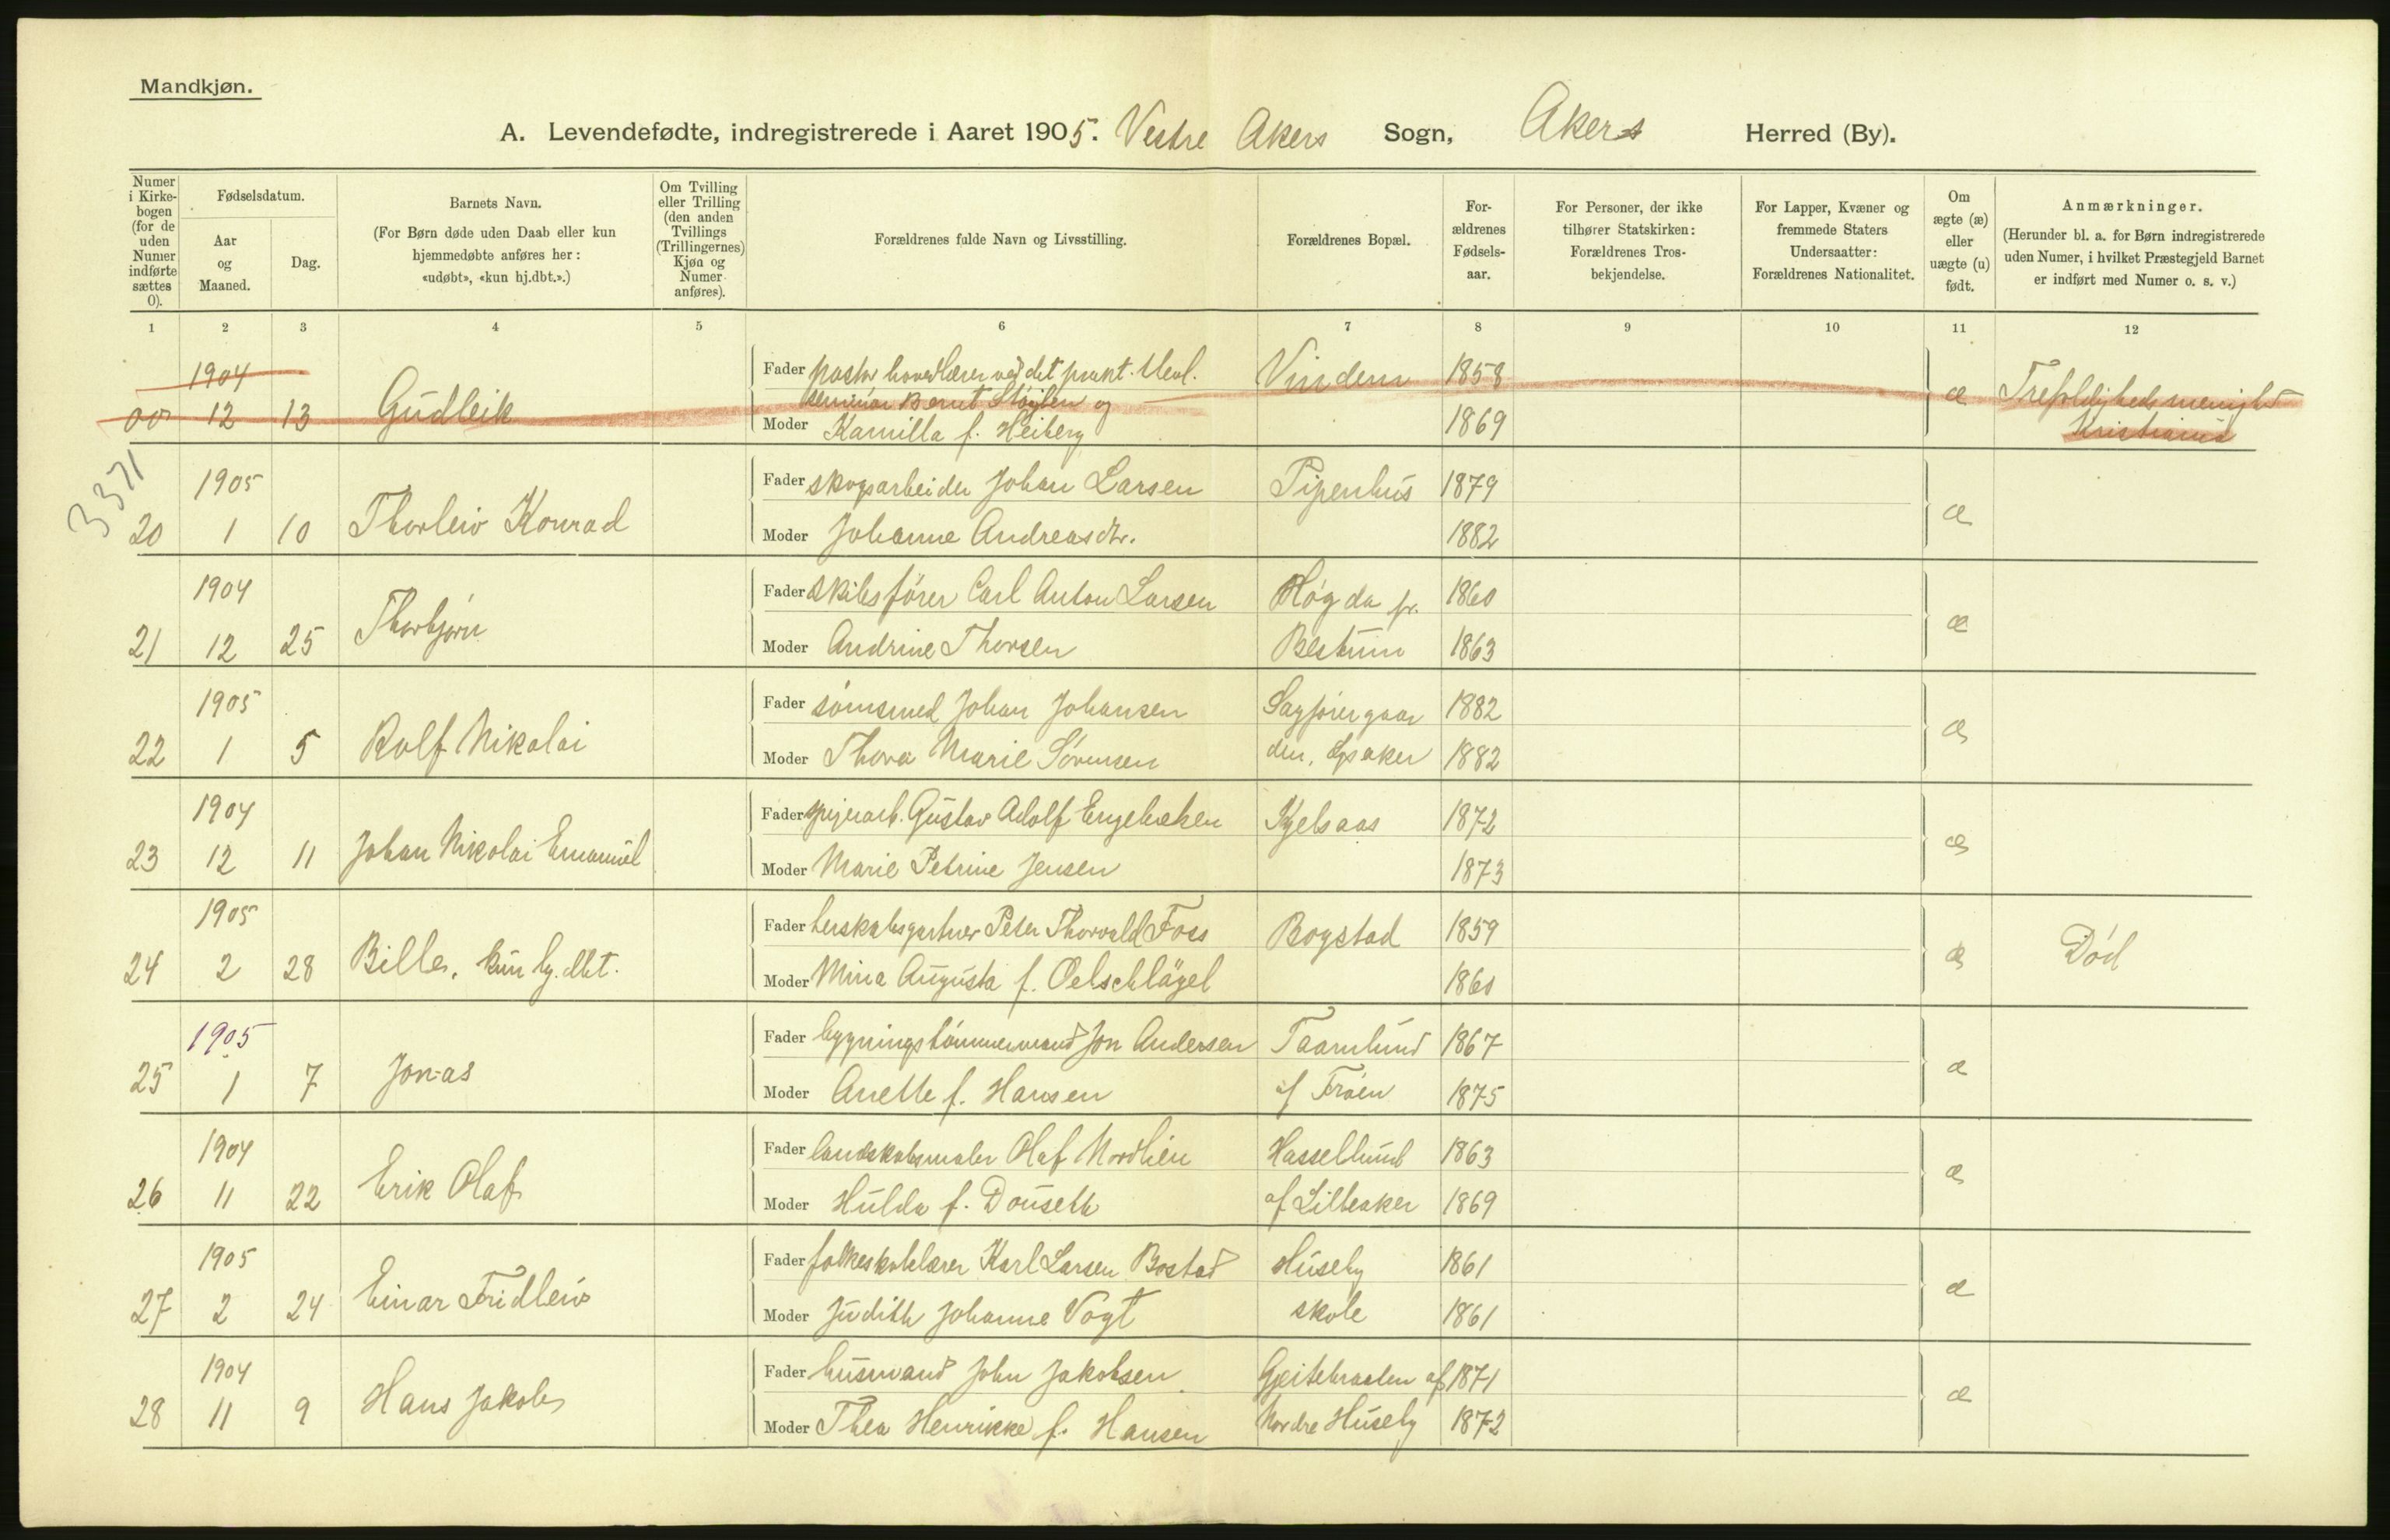 Mandkjøn.
A. Levendefødte, indregistrerede i Aaret 1905. Vestre Akers Sogn, Akers Herred (By).
Numer i Kirkebogen (for de uden Numer indførte sættes 0).
Fødselsdatum.
Aar og Maaned.
Dag.
Barnets Navn.
(For Børn døde uden Daab eller kun hjemmedøbte anføres her: «udøbt», «kun hj.dbt.».)
Om Tvilling eller Trilling (den anden Tvillings (Trillingernes) Kjøn og Numer anføres).
Forældrenes fulde Navn og Livsstilling.
Forældrenes Bopæl.
Forældrenes Fødselsaar.
For Personer, der ikke tilhører Statskirken: Forældrenes Trosbekjendelse.
For Lapper, Kvæner og fremmede Staters Undersaatter: Forældrenes Nationalitet.
Om ægte (æ) eller uægte (u) født.
Anmærkninger.
(Herunder bl. a. for Børn indregistrerede uden Numer, i hvilket Præstegjeld Barnet er indført med Numer o. s. v.)
1 2 3 4 5 6 7 8 9 10 11 12
1904 Fader pastor hovedlærer ved det prakt. theol. Vindern 1858
00 12 13 Gudleik seminar Bernt Støylen og æ Trefoldigheds menighed
Moder Kamilla f. Heiberg 1869 Kristiania
3371
1905 Fader skogsarbeider Johan Larsen Pipenhus 1879
20 1 10 Thorleiv Konrad æ
Moder Johanne Andreasdtr. 1882
1904 Fader skibsfører Carl Anton Larsen Høgda pr. 1860
21 12 25 Thorbjørn æ
Moder Andrine Thorsen Bestum 1863
1905 Fader sømsmed Johan Johansen Sagførergaar 1882
22 1 5 Rolf Nikolai æ
Moder Thora Marie Sørensen den, Lysaker 1882
1904 Fader spigerarb. Gustav Adolf Engebretsen Kjelsaas 1872
23 12 11 Johan Nikolai Emanuel æ
Moder Marie Petrine Jensen 1873
1905 Fader herskabsgartner Peter Thorvald Foss Bogstad 1859
24 2 28 Bille, kun hj. dbt. æ Død
Moder Mina Augusta f. Oelschlägel 1860
1905 Fader bygningstømmermand Jon Andersen Taarnlund 1867
25 1 7 Jonas æ
Moder Anette f. Hansen af Frøen 1875
1904 Fader landskabsmaler Olaf Nordlien Hassellund 1863
26 11 22 Erik Olaf æ
Moder Hulda f. Douseth af Lilleaker 1869
1905 Fader folkeskolelærer Karl Larsen Bostad Huseby 1861
27 2 24 Einar Fridleiv æ
Moder Judith Johanne Vogt skole 1861
1904 Fader husmand John Jakobsen Gjeitebraaten af 1871
28 11 9 Hans Jakob æ
Moder Thea Henrikke f. Hansen Nordre Huseby 1872